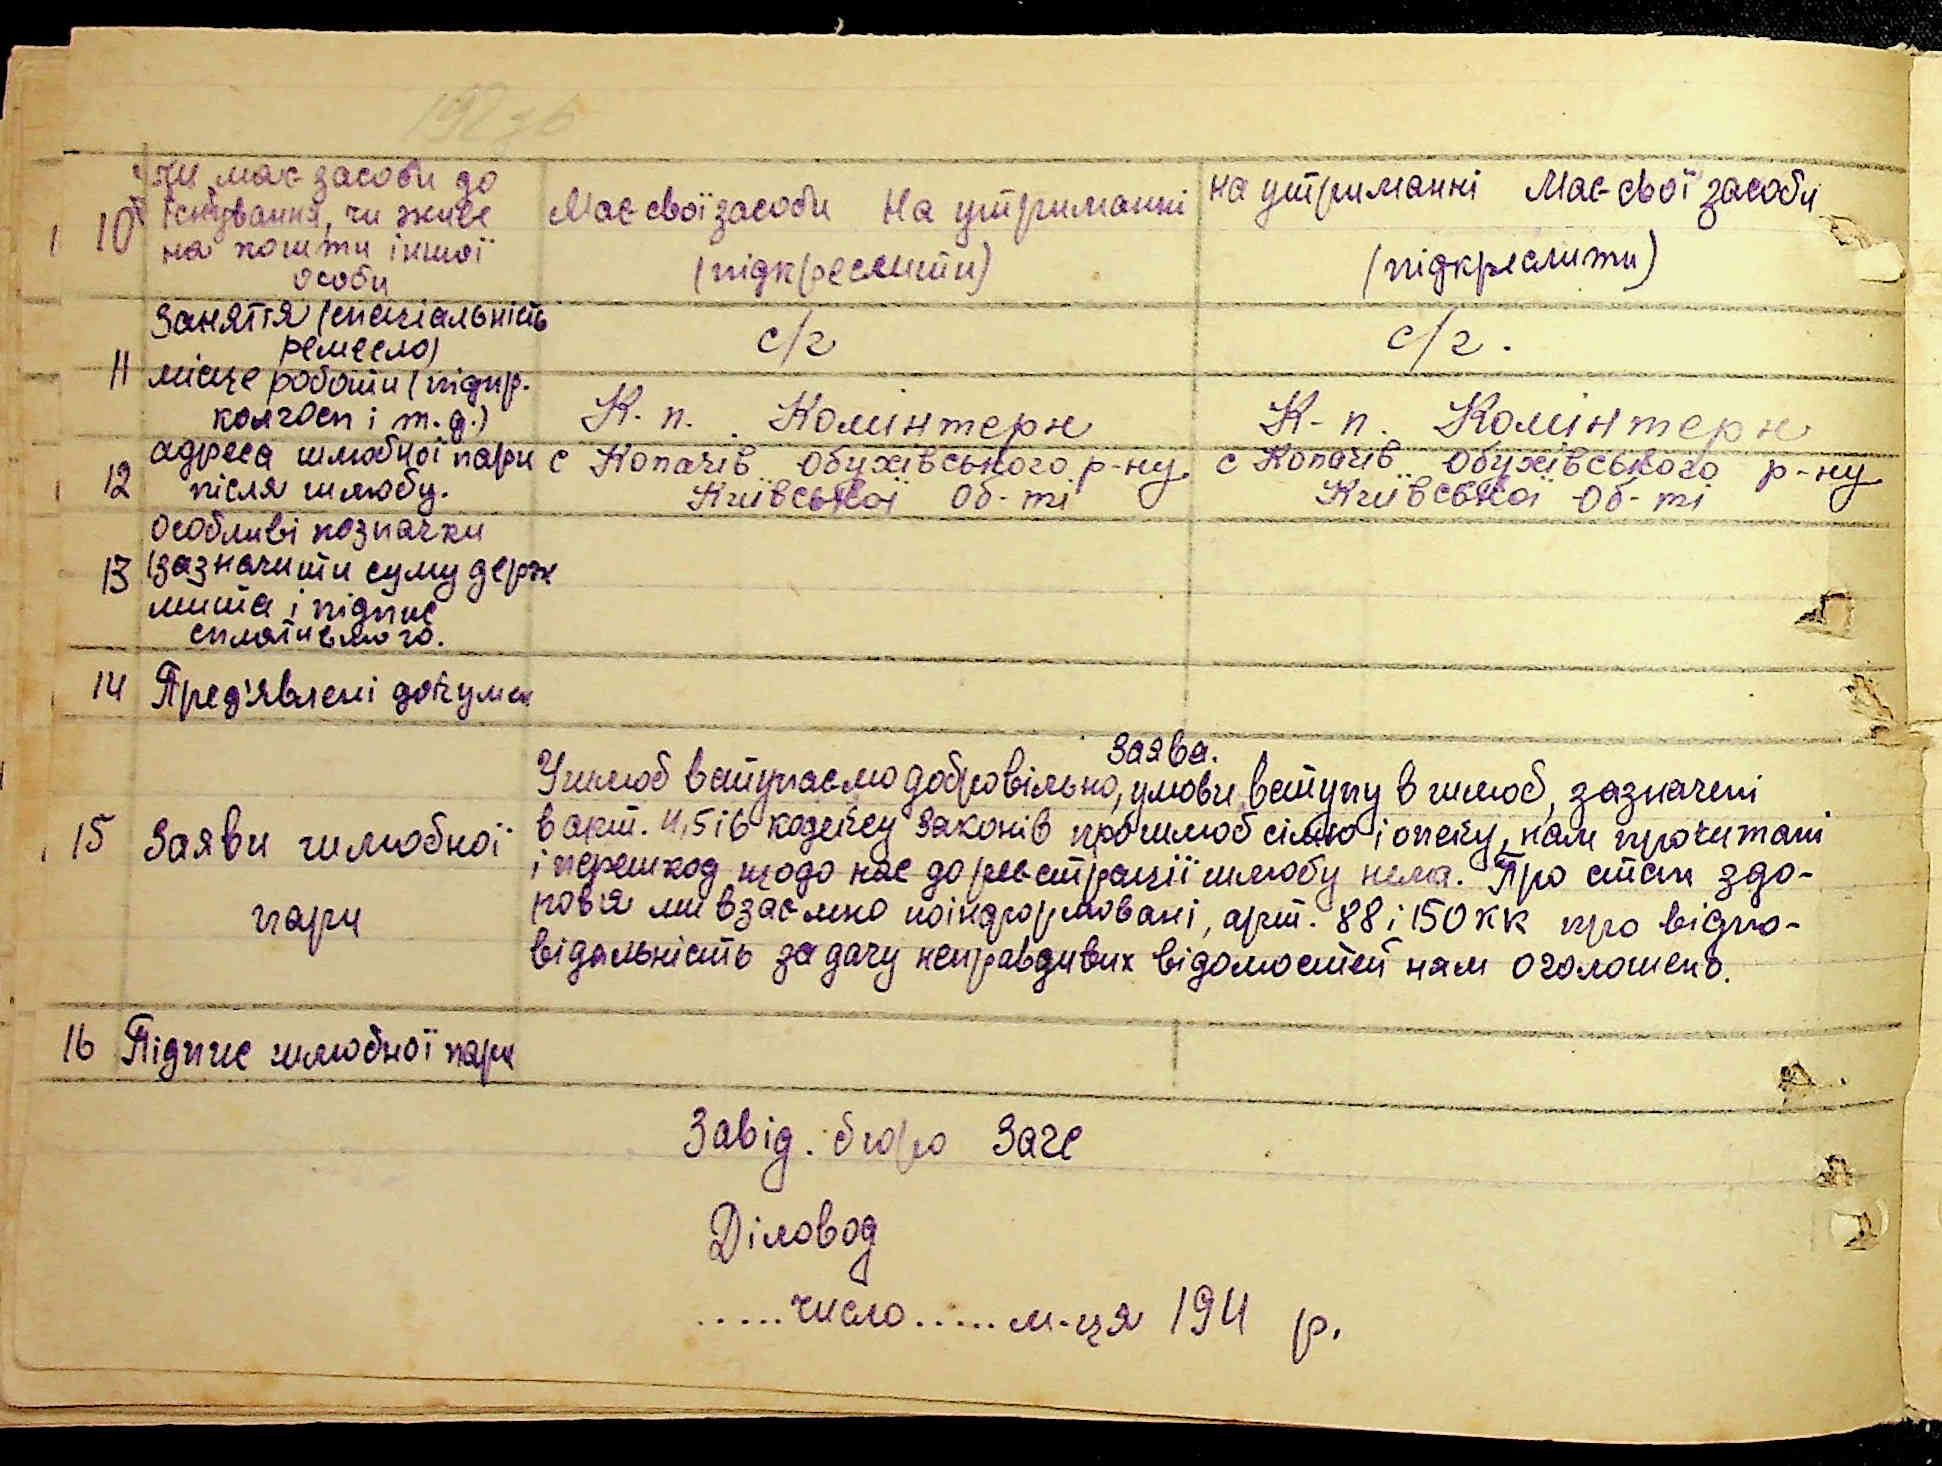 192 зв
10 Чи має засоби до
існування, чи живе
на кошти іншої
особи
Має свої засоби На утриманні
(підкреслити)
на утриманні Має свої засоби
(підкреслити)
11 Заняття (спеціальність
ремесло)
с/г
с/г.
місце роботи (підпр.
колгосп і т.д.)
К. п. Комінтерн
К-п. Комінтерн
12 адреса шлюбної пари
після шлюбу.
с Копачів Обухівського р-ну
Київської Об-ті
с Копачів Обухівського р-ну
Київської Об-ті
13 особливі позначки
(зазначити суму держ
мита і підпис
сплатившого.
14 Пред'явлені докумен
15 Заяви шлюбної
пари
Заява.
У шлюб вступаємо добровільно, умови вступу в шлюб, зазначені
в арт. 4,5 і 6 кодексу законів про шлюб сім'ю і опеку, нам прочитані
і перешкод щодо нас до реєстрації шлюбу нема. Про стан здо-
ров'я ми взаємно поінформовані, арт. 88 і 150 КК про відпо-
відальність за дачу неправдивих відомостей нам оголошено.
16 Підпис шлюбної пари
Завід. бюро Загс
Діловод
.....число.....м-ця 194 р.